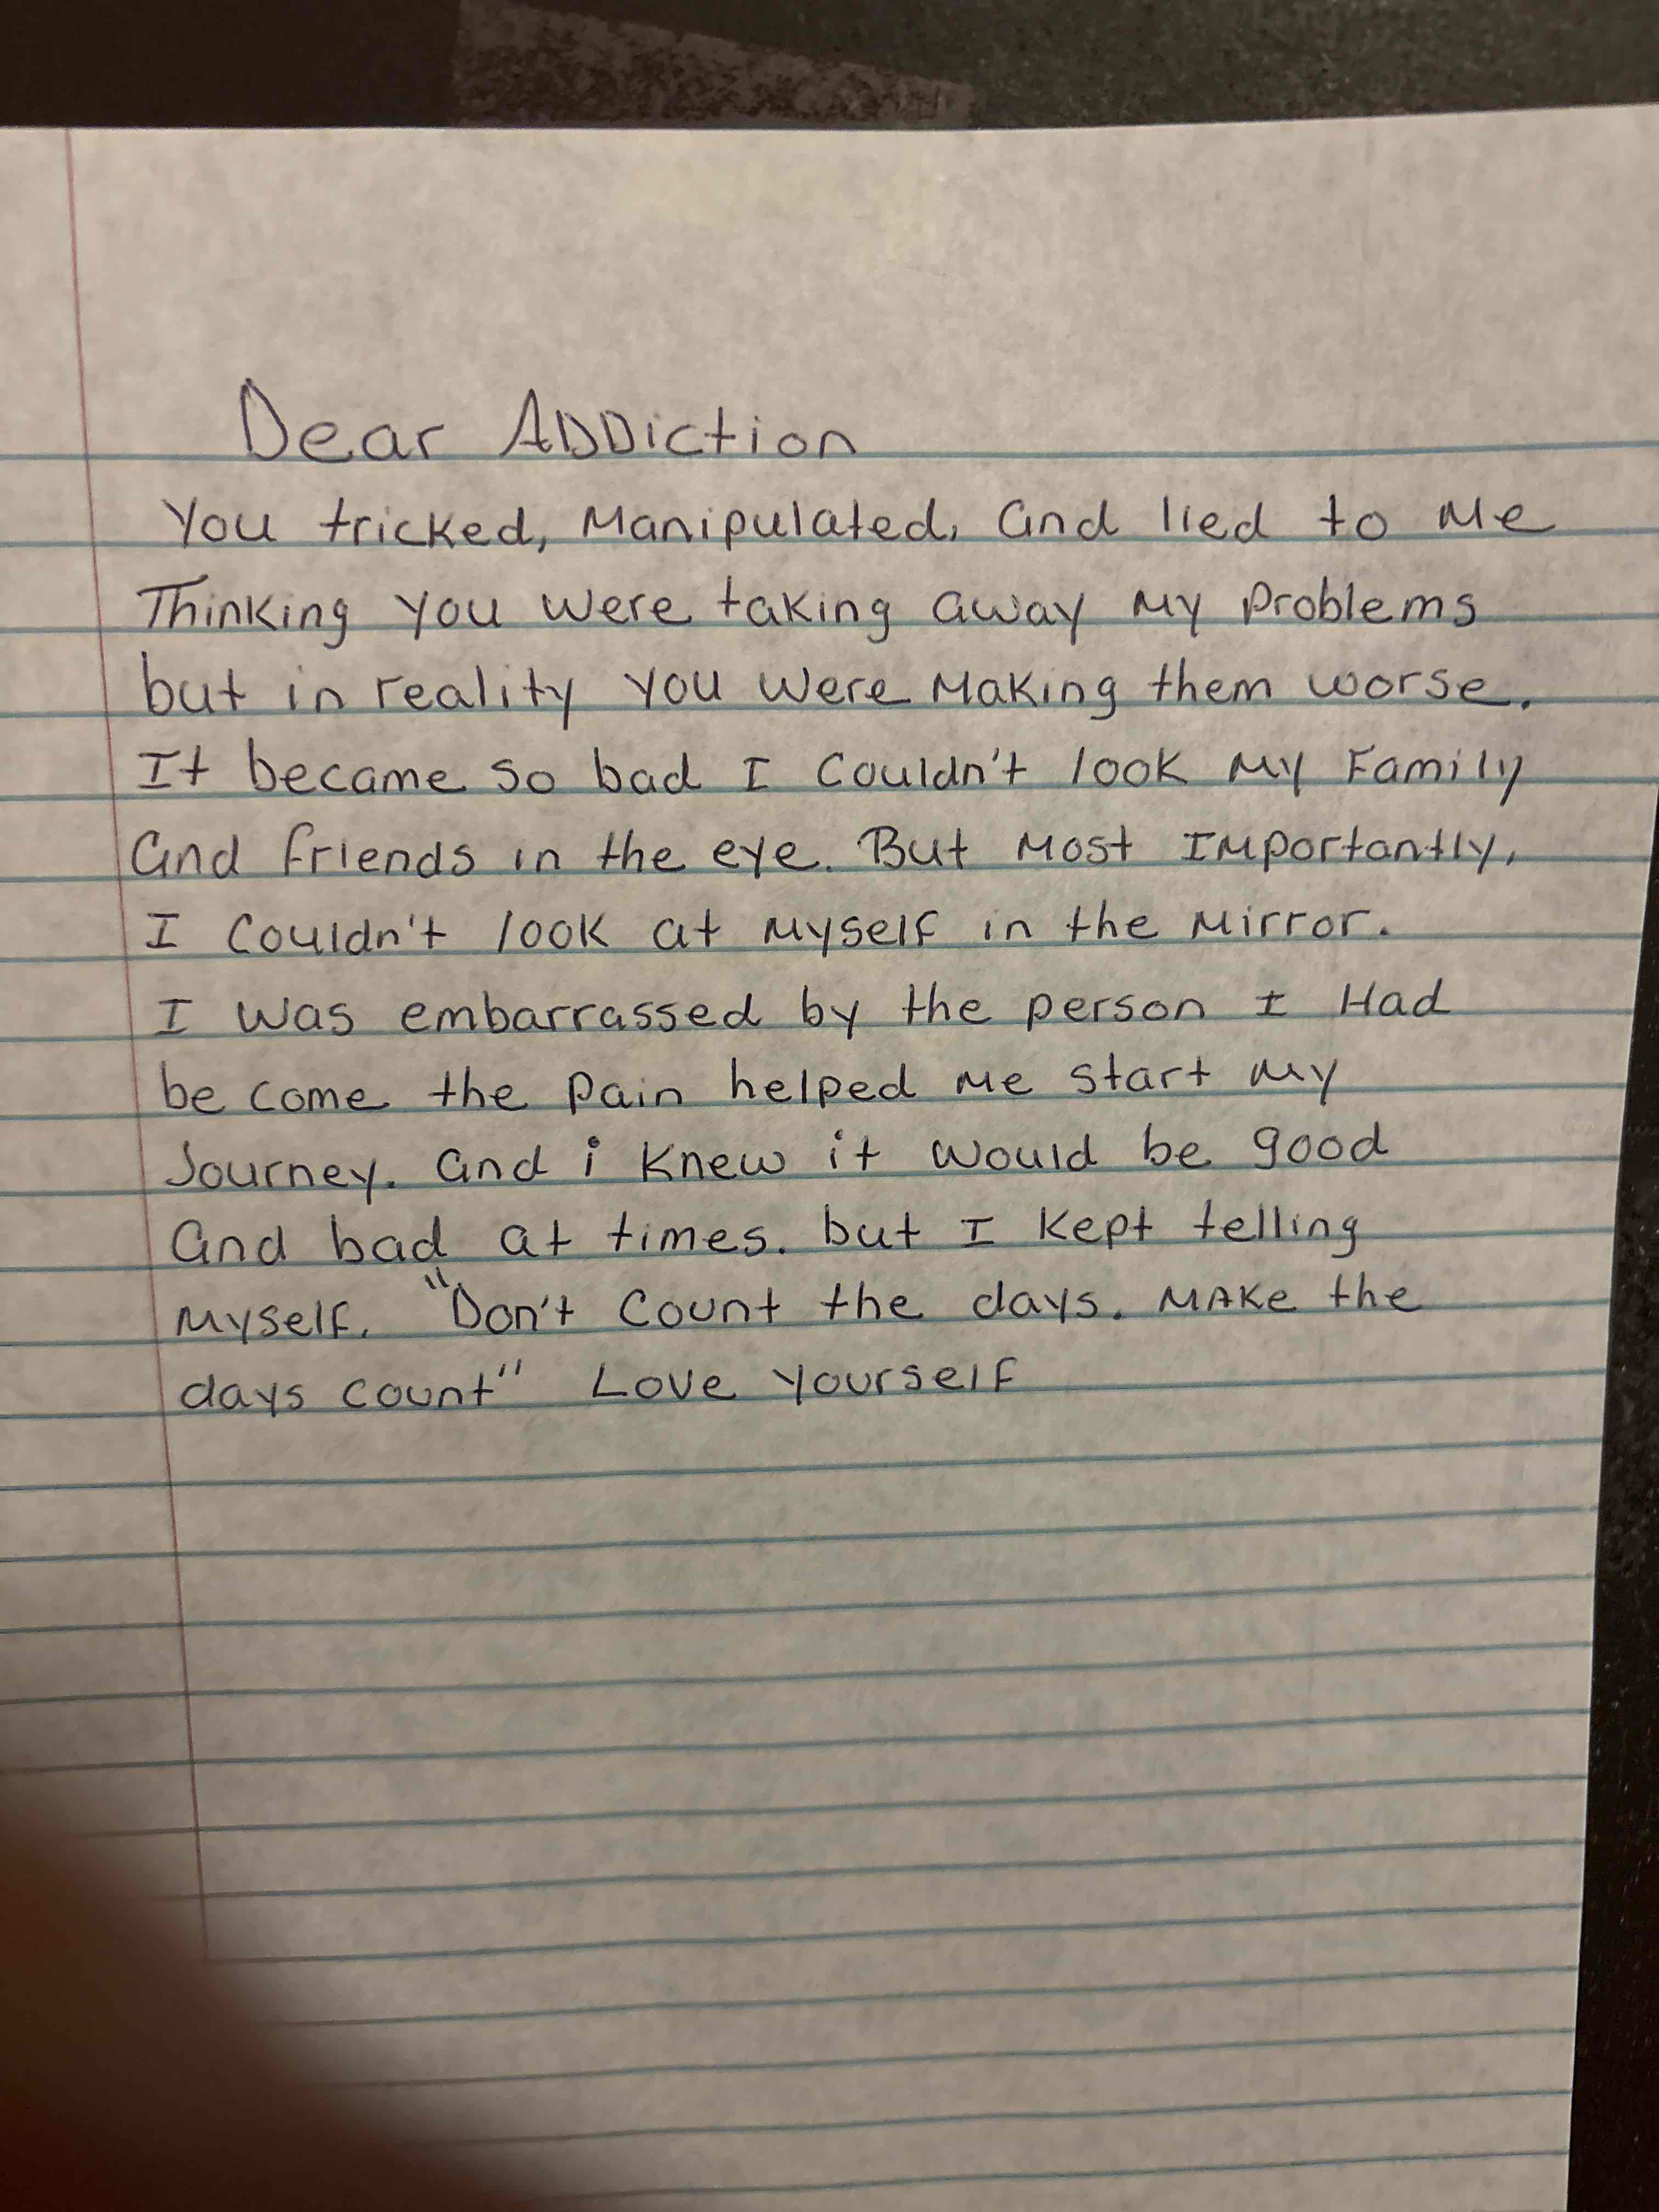 Dear ADDiction
You tricked, Manipulated, and lied to Me
Thinking you were taking away My problems
but in reality you were Making them worse.
It became so bad I couldn't look My Family
and friends in the eye. But Most Importantly,
I couldn't look at Myself in the Mirror.
I was embarrassed by the person I Had
be come the pain helped me start My
Journey. and i knew it would be good
and bad at times. but I kept telling
Myself. "Don't count the days. MAKe the
days count" Love yourself